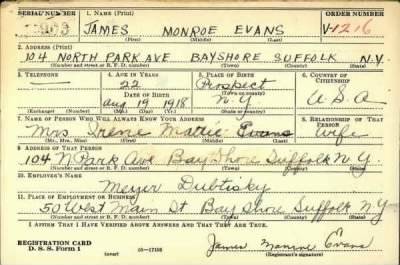 SERIAL NUMBER 1. NAME (Print) ORDER NUMBER
JAMES MONROE EVANS V-1216
(First) (Middle) (Last)
2. ADDRESS (Print)
104 NORTH PARK AVE BAYSHORE SUFFOLK N.Y.
(Number and street or R. F. D. number) (Town) (County) (State)
3. TELEPHONE 4. AGE IN YEARS 5. PLACE OF BIRTH 6. COUNTRY OF CITIZENSHIP
22 Prospect
DATE OF BIRTH (Town or county)
Aug 19 1918 N.Y. U.S.A
(Exchange) (Number) (Mo.) (Day) (Yr.) (State or country)
7. NAME OF PERSON WHO WILL ALWAYS KNOW YOUR ADDRESS 8. RELATIONSHIP OF THAT PERSON
Mrs Irene Mattie Evans Wife
(Mr., Mrs., Miss) (First) (Middle) (Last)
9. ADDRESS OF THAT PERSON
104 N Park Ave Bay Shore Suffolk N.Y.
(Number and street or R. F. D. number) (Town) (County) (State)
10. EMPLOYER'S NAME
Meyer
11. PLACE OF EMPLOYMENT OR BUSINESS
50 West Main St Bay Shore Suffolk N.Y
(Number and street or R. F. D. number) (Town) (County) (State)
I AFFIRM THAT I HAVE VERIFIED ABOVE ANSWERS AND THAT THEY ARE TRUE.
REGISTRATION CARD
D. S. S. Form 1 (over) James Monroe Evans
(Registrant's signature)